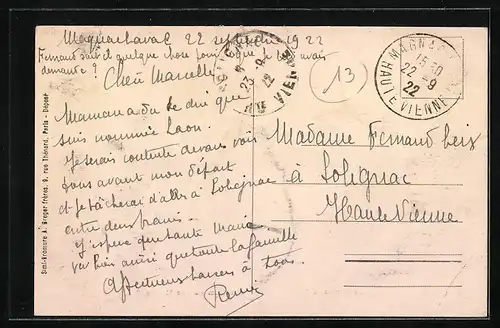 Magnac Laval 22 septembre 1922
Fernand sait il quelque chose pour ce que je lui avais
demandé ?
Chère Marcelle
Maman a dû te dire que
suis nommée Laon.
Je serais contente de vous voir
tous avant mon départ
et je tâcherai d'aller à Solignac
entre deux trains.
J'espère que tante Marie
va bien ainsi que toute la famille
Affectueux baisers à tous.
(13)
MAGNAC
15 30
22 - 9
22
HAUTE VIENNE
23 - 9
22
VIENNE
Madame Fernand
à Solignac
Haute Vienne
Simi-Bromure A. Breger frères, 9, rue Thénard, Paris - Déposé